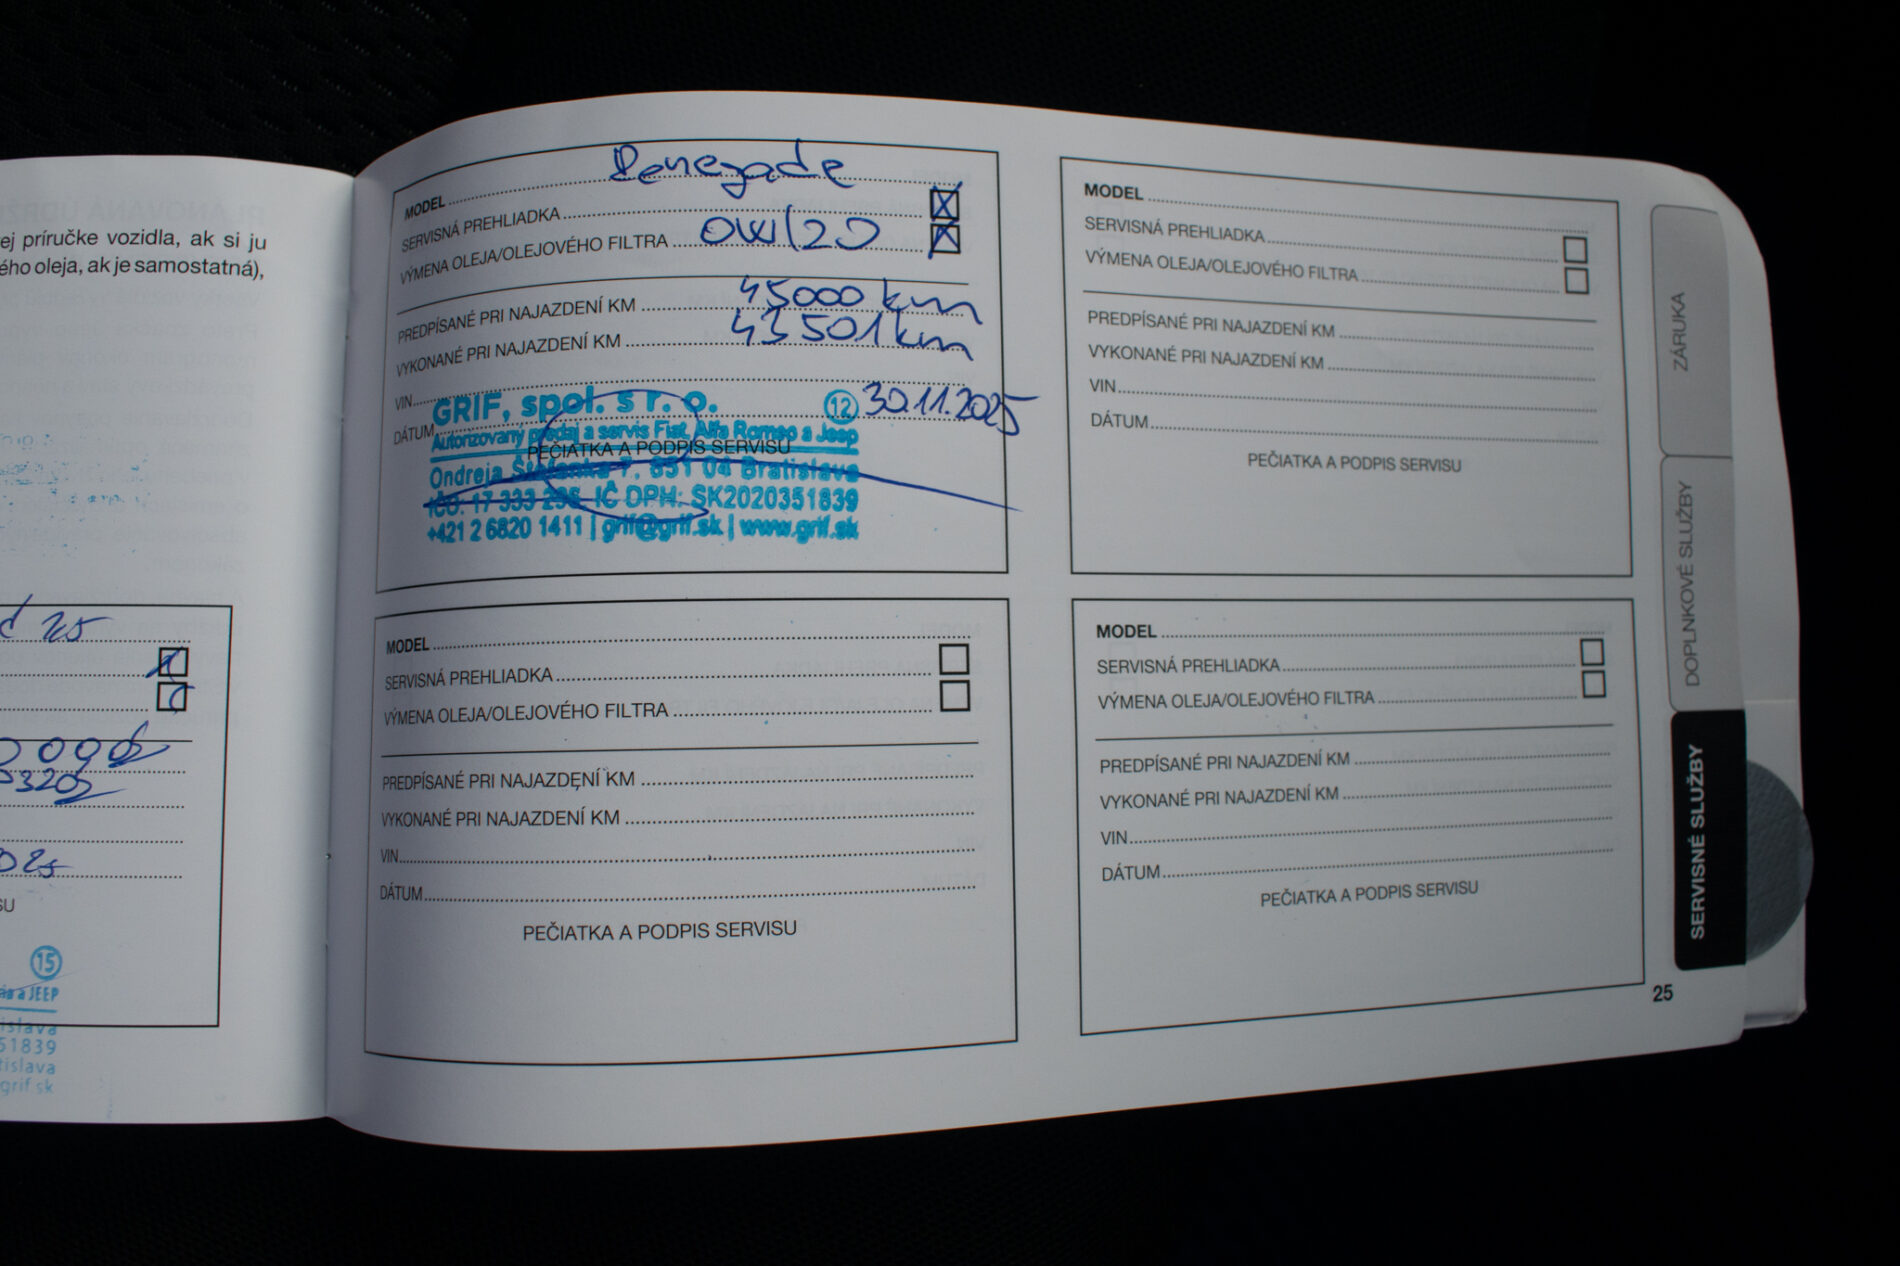 ej príručke vozidla, ak si ju
ého oleja, ak je samostatná),
25
000
320
025
SU
15
a JEEP
islava
51839
tislava
grif.sk
MODEL Renegade
SERVISNÁ PREHLIADKA X
VÝMENA OLEJA/OLEJOVÉHO FILTRA 0W/20 X
PREDPÍSANÉ PRI NAJAZDENÍ KM 45000 km
VYKONANÉ PRI NAJAZDENÍ KM 43501 km
VIN
DÁTUM 30.11.2025
PEČIATKA A PODPIS SERVISU
GRIF, spol. s r. o. 12
Autorizovaný predaj a servis Fiat, Alfa Romeo a Jeep
Ondreja Štefanka 7, 851 04 Bratislava
IČO: 17 333 296 IČ DPH: SK2020351839
+421 2 6820 1411 | grif@grif.sk | www.grif.sk
MODEL
SERVISNÁ PREHLIADKA
VÝMENA OLEJA/OLEJOVÉHO FILTRA
PREDPÍSANÉ PRI NAJAZDENÍ KM
VYKONANÉ PRI NAJAZDENÍ KM
VIN
DÁTUM
PEČIATKA A PODPIS SERVISU
MODEL
SERVISNÁ PREHLIADKA
VÝMENA OLEJA/OLEJOVÉHO FILTRA
PREDPÍSANÉ PRI NAJAZDENÍ KM
VYKONANÉ PRI NAJAZDENÍ KM
VIN
DÁTUM
PEČIATKA A PODPIS SERVISU
MODEL
SERVISNÁ PREHLIADKA
VÝMENA OLEJA/OLEJOVÉHO FILTRA
PREDPÍSANÉ PRI NAJAZDENÍ KM
VYKONANÉ PRI NAJAZDENÍ KM
VIN
DÁTUM
PEČIATKA A PODPIS SERVISU
ZÁRUKA
DOPLNKOVÉ SLUŽBY
SERVISNÉ SLUŽBY
25